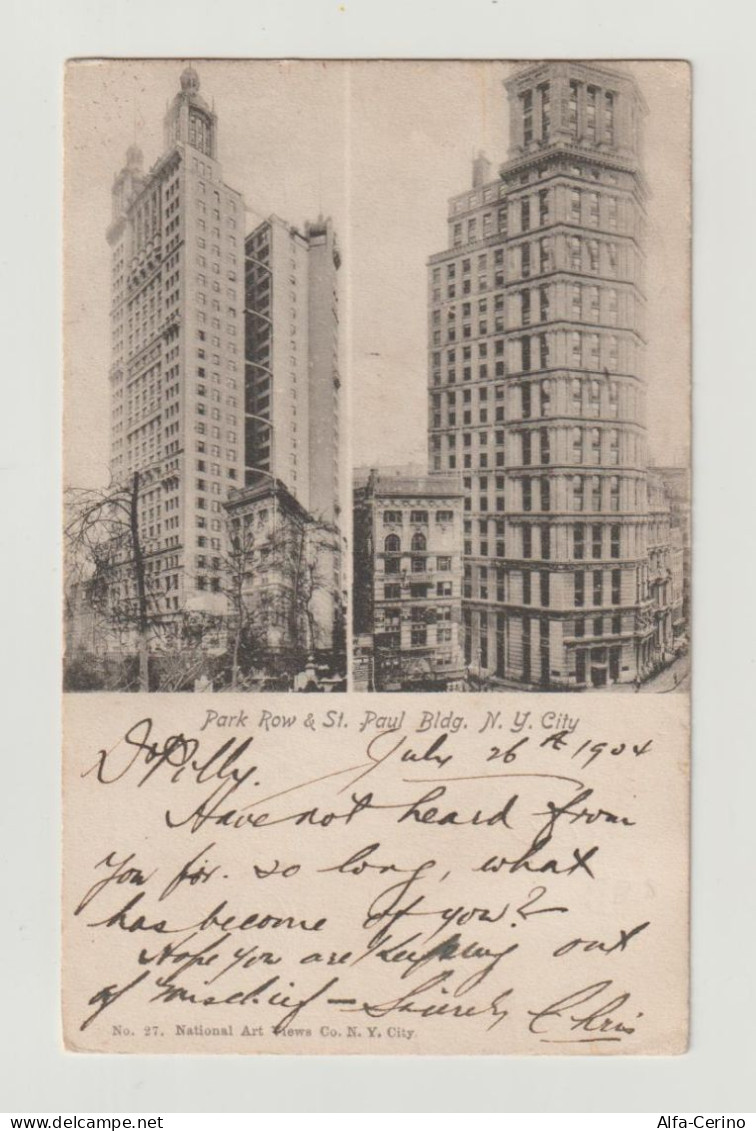 Park Row & St. Paul Bldg. N. Y. City
July 26th 1904
Have not heard from
you for so long, what
has become of you?
Hope you are keeping out
of mischief – Sincerely Chris
No. 27. National Art Views Co. N. Y. City.
Alfa-Cerino